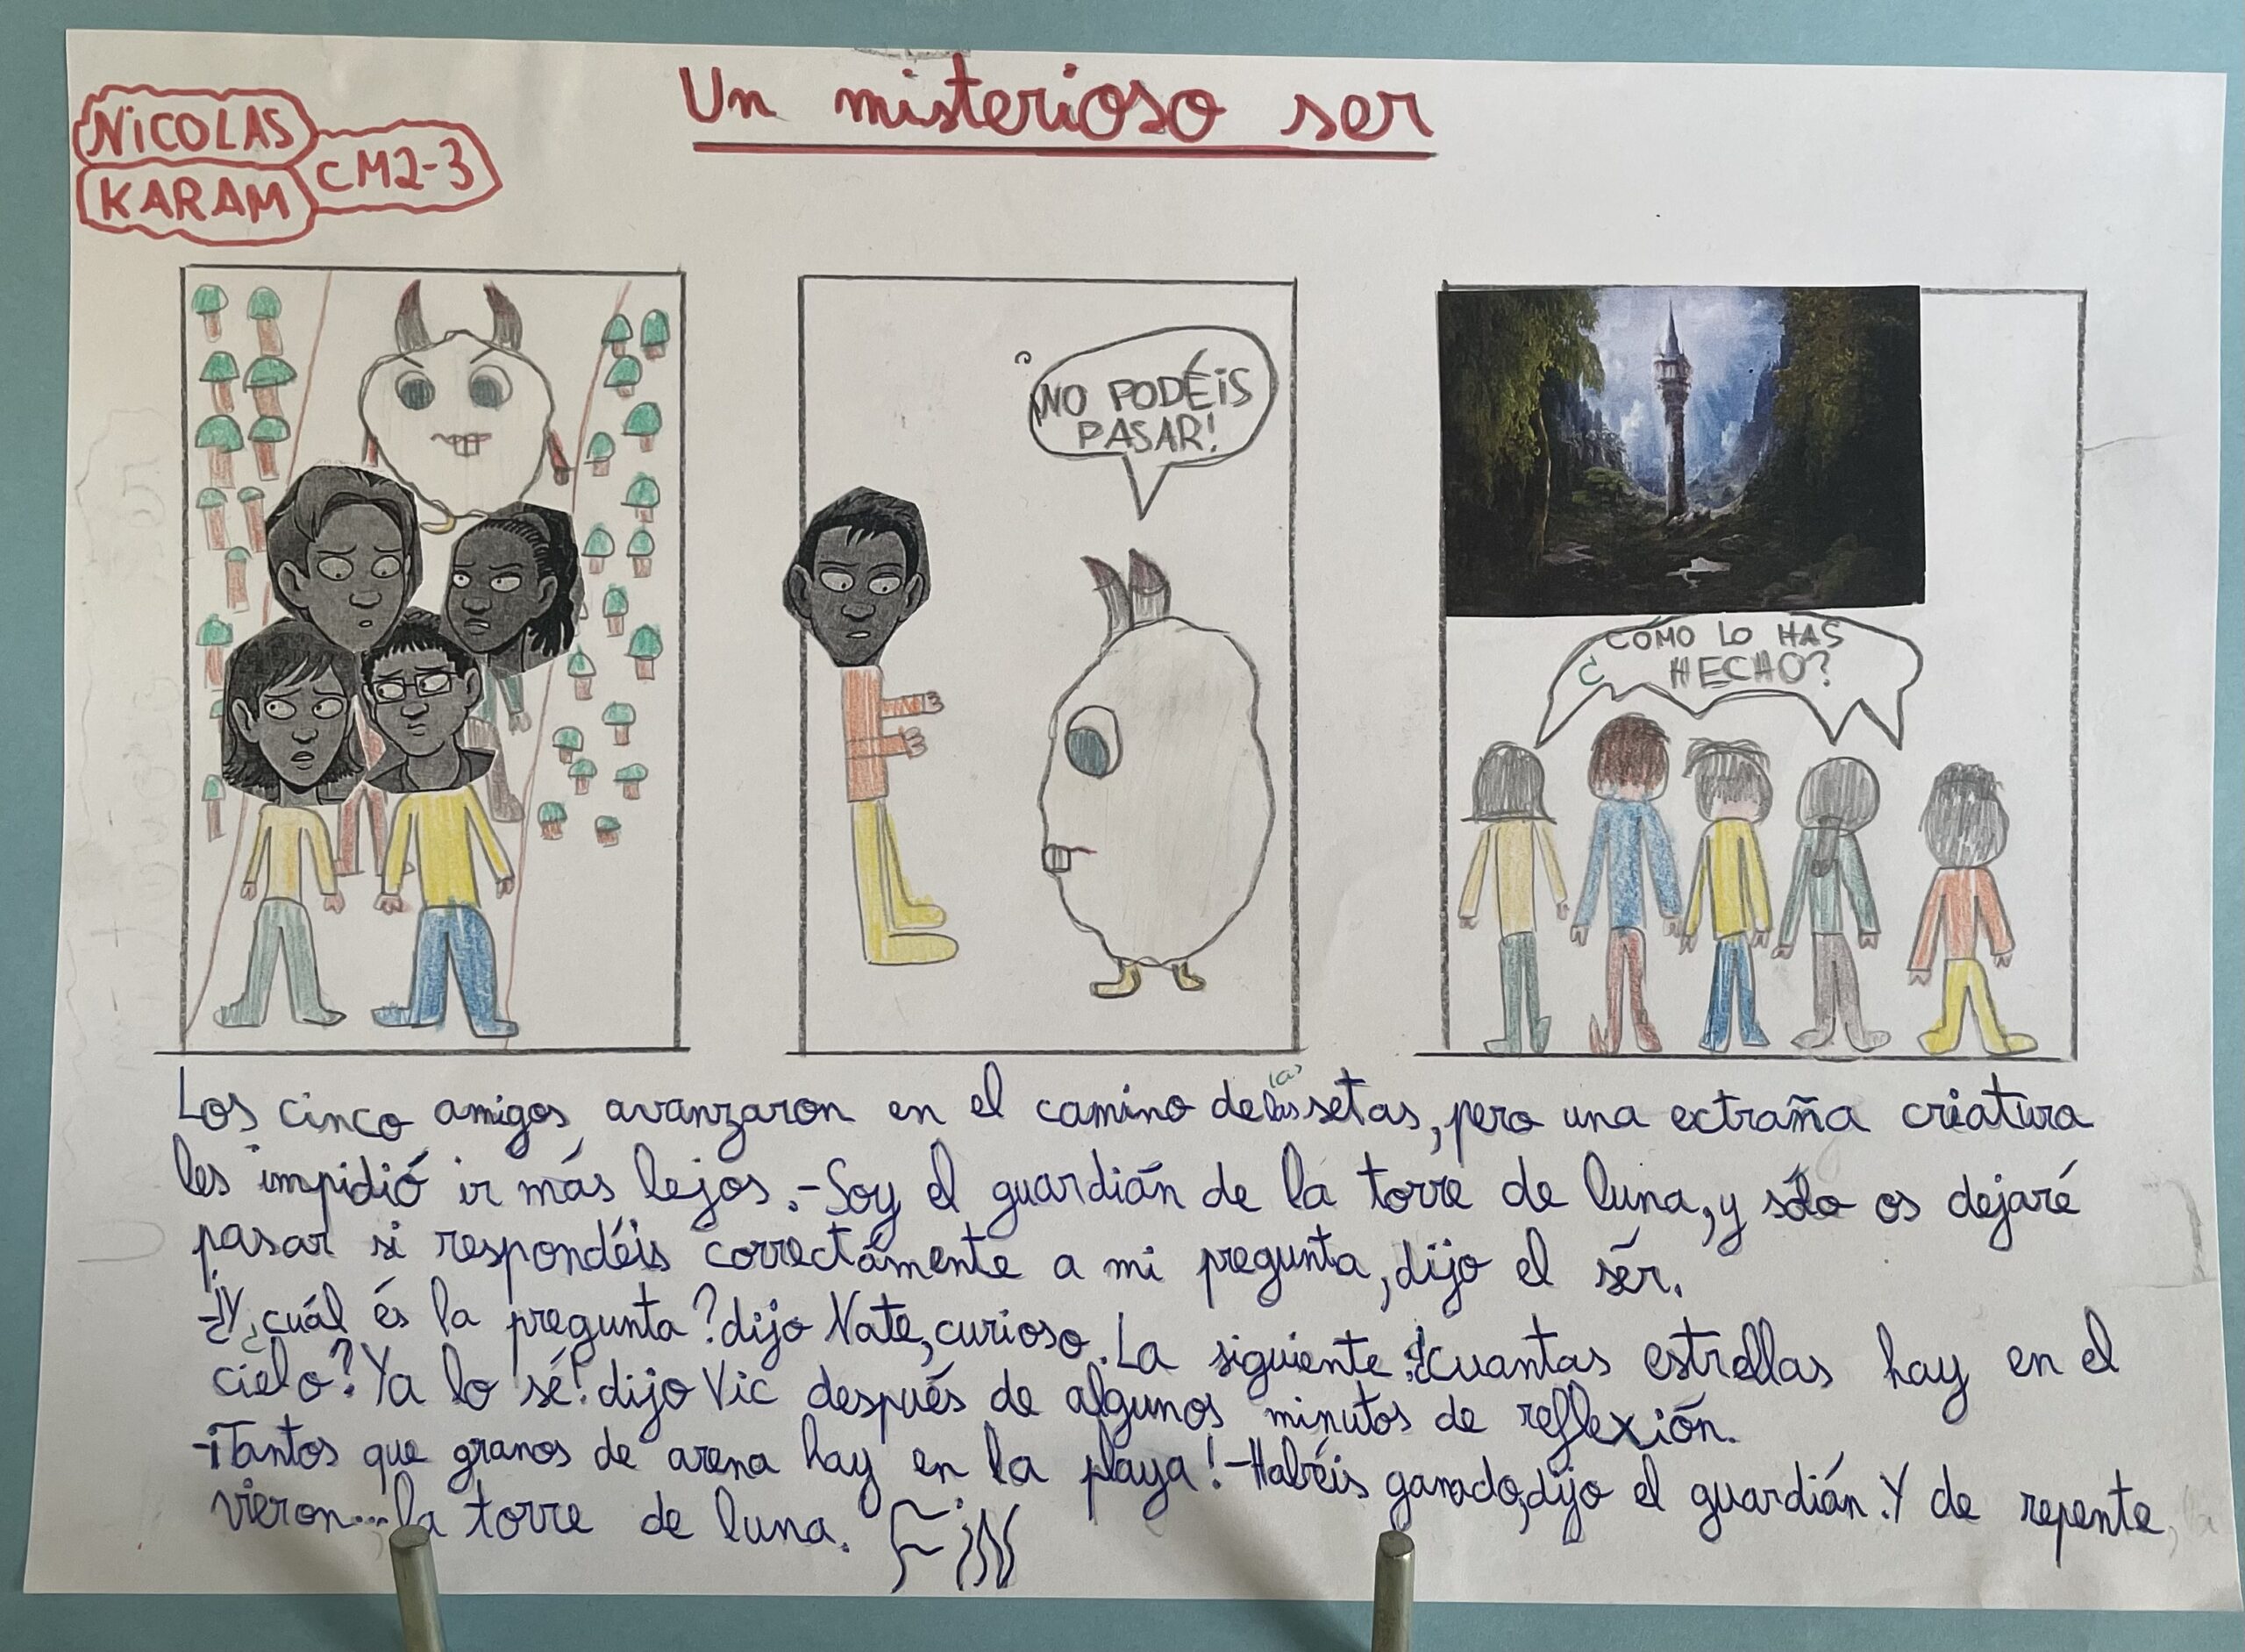 Un misterioso ser
NICOLAS
KARAM
CM2-3
¡NO PODÉIS
PASAR!
¿CÓMO LO HAS
HECHO?
Los cinco amigos avanzaron en el camino de las setas, pero una extraña criatura
les impidió ir más lejos. -Soy el guardián de la torre de luna, y sólo os dejaré
pasar si respondéis correctámente a mi pregunta, dijo el sér.
-¿Y cuál és la pregunta? dijo Nate, curioso. La siguiente: ¿cuantas estrellas hay en el
cielo? Ya lo sé! dijo Vic después de algunos minutos de reflexión.
-¡Tantos que granos de arena hay en la playa! -Habéis ganado, dijo el guardián. Y de repente,
vieron... la torre de luna. FiN